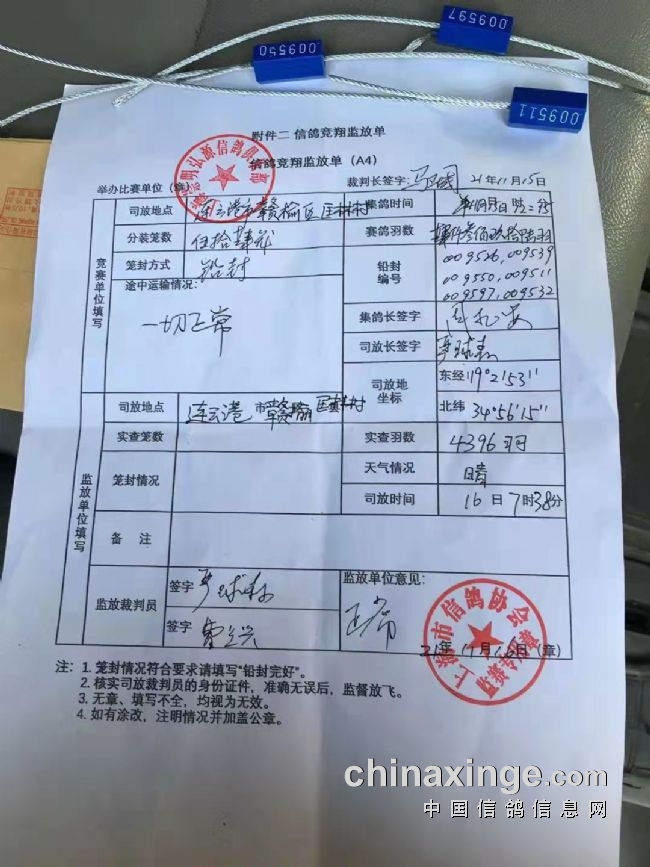 009597
009550
009511
附件二 信鸽竞翔监放单
信鸽竞翔监放单（A4）
举办比赛单位（章）
裁判长签字： 21年11月15日
司放地点 连云港市赣榆区 村 集鸽时间
分装笼数 伍拾肆 赛鸽羽数
笼封方式 铅封 铅封编号 009526、009539
009550、009511
009597、009532
途中运输情况：
一切正常
集鸽长签字
司放长签字
竞赛单位填写
司放地坐标 东经 119°2'53''
北纬 34°56'15''
司放地点 连云港市赣榆 村
实查笼数 实查羽数 4396羽
笼封情况 天气情况 晴
司放时间 16日7时38分
监放单位填写
备 注
监放裁判员 签字
签字
监放单位意见：
正常
21年11月16日（章）
市信鸽协会
注：1. 笼封情况符合要求请填写“铅封完好”。
2. 核实司放裁判员的身份证件，准确无误后，监督放飞。
3. 无章、填写不全，均视为无效。
4. 如有涂改，注明情况并加盖公章。
chinaxinge.com
中国信鸽信息网